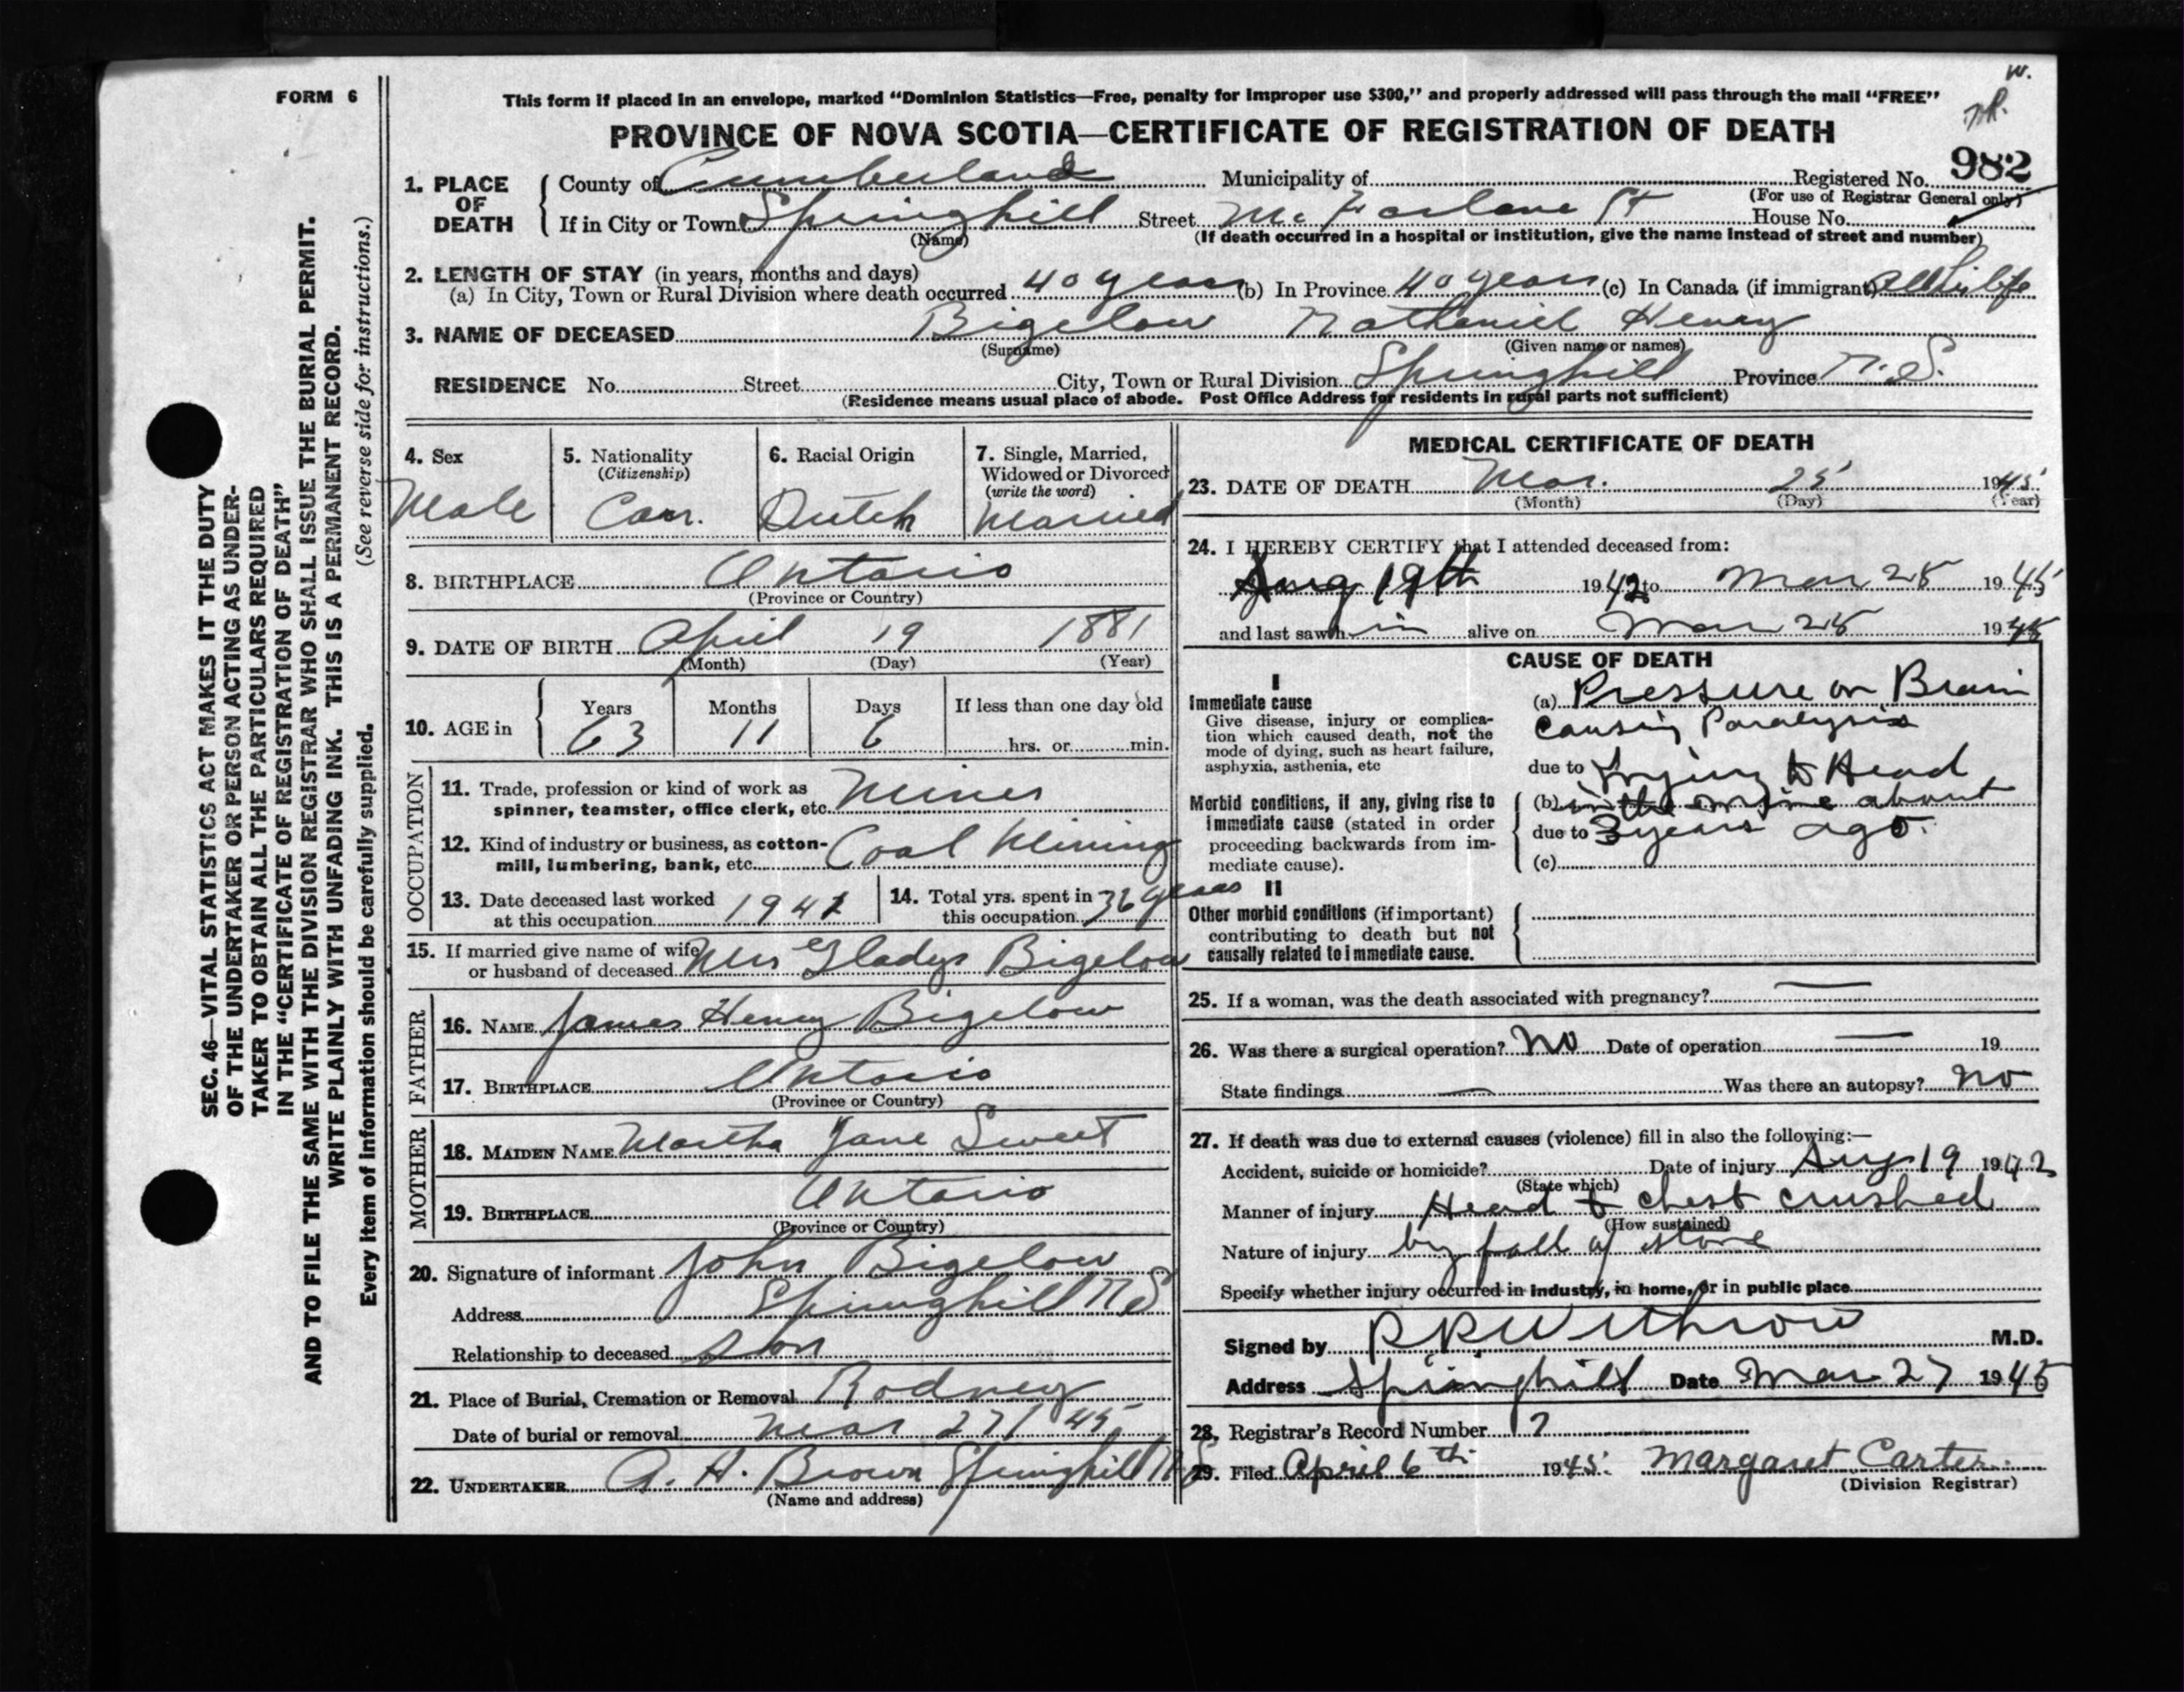 W.
FORM 6
This form if placed in an envelope, marked "Dominion Statistics—Free, penalty for improper use $300," and properly addressed will pass through the mail "FREE"
PROVINCE OF NOVA SCOTIA—CERTIFICATE OF REGISTRATION OF DEATH
982
1. PLACE OF DEATH County of Cumberland Municipality of Registered No.
(For use of Registrar General only)
If in City or Town Springhill Street McFarlane St House No.
(Name) (If death occurred in a hospital or institution, give the name instead of street and number)
2. LENGTH OF STAY (in years, months and days)
(a) In City, Town or Rural Division where death occurred 40 years (b) In Province 40 years (c) In Canada (if immigrant) All his life
3. NAME OF DECEASED Bigelow Nathaniel Henry
(Surname) (Given name or names)
RESIDENCE No. Street City, Town or Rural Division Springhill Province N.S.
(Residence means usual place of abode. Post Office Address for residents in rural parts not sufficient)
4. Sex
Male
5. Nationality
(Citizenship)
Can.
6. Racial Origin
Dutch
7. Single, Married,
Widowed or Divorced
(write the word)
Married
8. BIRTHPLACE Ontario
(Province or Country)
9. DATE OF BIRTH April 19 1881
(Month) (Day) (Year)
10. AGE in Years Months Days If less than one day old
63 11 6 hrs. or min.
OCCUPATION
11. Trade, profession or kind of work as
spinner, teamster, office clerk, etc. Miner
12. Kind of industry or business, as cotton-
mill, lumbering, bank, etc. Coal Mining
13. Date deceased last worked
at this occupation 1942
14. Total yrs. spent in
this occupation 36 years
15. If married give name of wife
or husband of deceased Mrs Gladys Bigelow
FATHER
16. NAME James Henry Bigelow
17. BIRTHPLACE Ontario
(Province or Country)
MOTHER
18. MAIDEN NAME Martha Jane Sweet
19. BIRTHPLACE Ontario
(Province or Country)
20. Signature of informant John Bigelow
Address Springhill NS
Relationship to deceased son
21. Place of Burial, Cremation or Removal Rodney
Date of burial or removal Mar 27/45
22. UNDERTAKER A. H. Brown Springhill NS
(Name and address)
MEDICAL CERTIFICATE OF DEATH
23. DATE OF DEATH Mar. 25 1945
(Month) (Day) (Year)
24. I HEREBY CERTIFY that I attended deceased from:
Aug 19th 1942 to Mar 25 1945
and last saw h im alive on Mar 25 1945
CAUSE OF DEATH
I
Immediate cause
Give disease, injury or complica-
tion which caused death, not the
mode of dying, such as heart failure,
asphyxia, asthenia, etc
(a) Pressure on Brain
causing Paralysis
due to Injury to Head
Morbid conditions, if any, giving rise to
immediate cause (stated in order
proceeding backwards from im-
mediate cause).
(b) in the mine about
due to 3 years ago.
(c)
II
Other morbid conditions (if important)
contributing to death but not
causally related to immediate cause.
25. If a woman, was the death associated with pregnancy? —
26. Was there a surgical operation? No Date of operation — 19
State findings — Was there an autopsy? No
27. If death was due to external causes (violence) fill in also the following:—
Accident, suicide or homicide? Date of injury Aug 19 1942
(State which)
Manner of injury Head & chest crushed
(How sustained)
Nature of injury by fall of stone
Specify whether injury occurred in industry, in home, or in public place
Signed by R R Withrow M.D.
Address Springhill Date Mar 27 1945
28. Registrar's Record Number 17
29. Filed April 6th 1945. Margaret Carter.
(Division Registrar)
SEC. 46—VITAL STATISTICS ACT MAKES IT THE DUTY
OF THE UNDERTAKER OR PERSON ACTING AS UNDER-
TAKER TO OBTAIN ALL THE PARTICULARS REQUIRED
IN THE "CERTIFICATE OF REGISTRATION OF DEATH"
AND TO FILE THE SAME WITH THE DIVISION REGISTRAR WHO SHALL ISSUE THE BURIAL PERMIT.
WRITE PLAINLY WITH UNFADING INK. THIS IS A PERMANENT RECORD.
Every item of information should be carefully supplied. (See reverse side for instructions.)